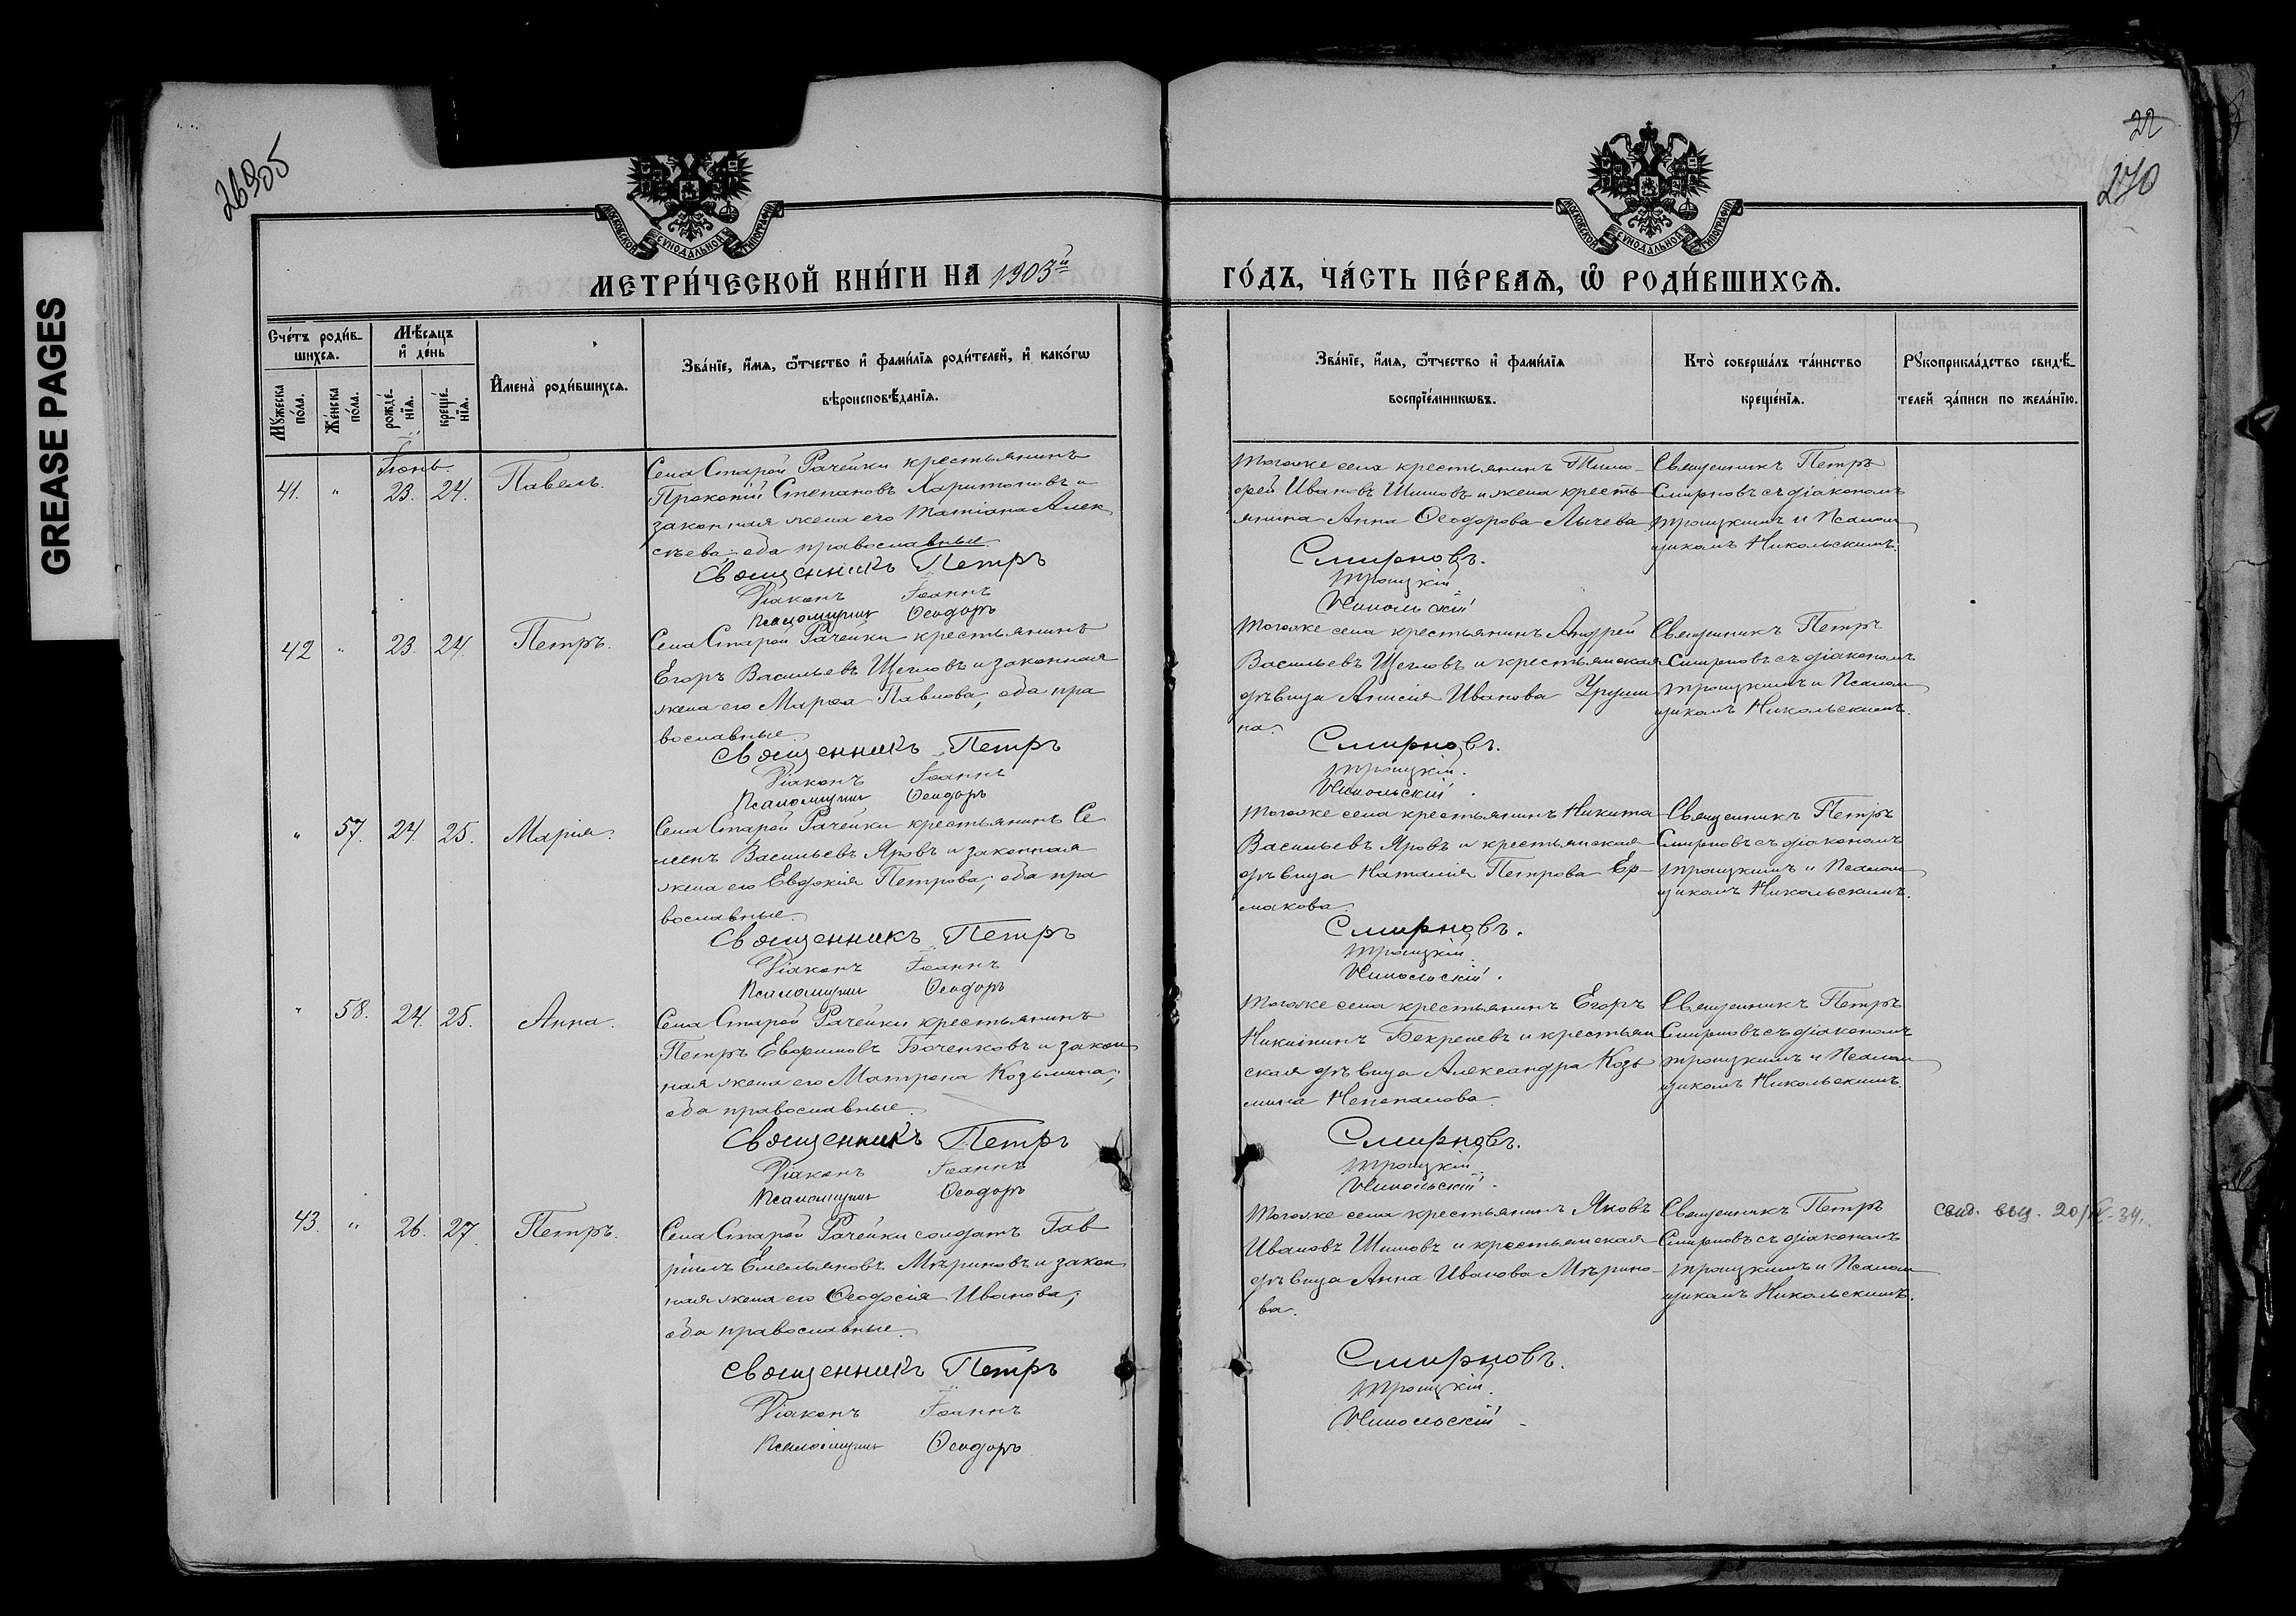 GREASE PAGES
22
270
МОСКОВСКОЙ СУНОДАЛЬНОЙ ТИПОГРАФІИ
МОСКОВСКОЙ СУНОДАЛЬНОЙ ТИПОГРАФІИ
МЕТРИ́ЧЕСКОЙ КНИ́ГИ НА 1903й
ГО́ДЪ, ЧА́СТЬ ПЕ́РВАѦ, Ѽ РОДИ́ВШИХСѦ.
Сче́тъ роди́вшихсѧ.
Мѣ́сѧцъ и҆ де́нь
И҆мена̀ роди́вшихсѧ.
Зва́нїе, и҆́мѧ, ѻ҆́тчество и҆ фами́лїѧ роди́телей, и҆ како́гѡ
вѣроисповѣ́данїѧ.
Мꙋ́жеска по́ла.
Же́нска по́ла.
рожде́нїѧ.
креще́нїѧ.
Зва́нїе, и҆́мѧ, ѻ҆́тчество и҆ фами́лїѧ
воспрїе́мникѡвъ.
Кто̀ соверша́лъ та́инство
креще́нїѧ.
Рꙋкоприкла́дство свидѣ́-
телей за́писи по жела́нїю.
Іюнь.
41. " 23. 24. Павелъ.
Села Старой Рачейки крестьянинъ
Прокопій Степановъ Харитоновъ и
законная жена его Татіана Алек
сѣева, оба православные.
Священникъ Петръ
Діаконъ Іоаннъ
Псаломщикъ Ѳеодоръ
Тогоже села крестьянинъ Тимо-
фей Ивановъ Шишовъ и жена кресть
янина Анна Ѳеодорова Лычева
Смирновъ.
Троицкій
Никольскій
Священникъ Петръ
Смирновъ съ діакономъ
Троицкимъ и Псалом
щикомъ Никольскимъ.
42 " 23. 24. Петръ.
Села Старой Рачейки крестьянинъ
Егоръ Васильевъ Щегловъ и законная
жена его Марѳа Павлова, оба пра
вославные.
Священникъ Петръ
Діаконъ Іоаннъ
Псаломщикъ Ѳеодоръ
Тогоже села крестьянинъ Андрей
Васильевъ Щегловъ и крестьянская
дѣвица Анисія Иванова
на.
Смирновъ.
Троицкій.
Никольскій.
Священникъ Петръ
Смирновъ съ діакономъ
Троицкимъ и Псалом
щикомъ Никольскимъ.
" 57. 24. 25. Марія.
Села Старой Рачейки крестьянинъ Се
менъ Васильевъ Яровъ и законная
жена его Евдокія Петрова, оба пра
вославные.
Священникъ Петръ
Діаконъ Іоаннъ
Псаломщикъ Ѳеодоръ
Тогоже села крестьянинъ Никита
Васильевъ Яровъ и крестьянская
дѣвица Наталія Петрова Ер-
макова.
Смирновъ.
Троицкій.
Никольскій.
Священникъ Петръ
Смирновъ съ діакономъ
Троицкимъ и Псалом
щикомъ Никольскимъ.
" 58. 24. 25. Анна.
Села Старой Рачейки крестьянинъ
Петръ Евфимовъ Боченковъ и закон
ная жена его Матрона Козьмина,
оба православные.
Священникъ Петръ
Діаконъ Іоаннъ
Псаломщикъ Ѳеодоръ
Тогоже села крестьянинъ Егоръ
Никитинъ Бекреневъ и крестьян
ская дѣвица Александра Козь
мина
Смирновъ.
Троицкій.
Никольскій.
Священникъ Петръ
Смирновъ съ діакономъ
Троицкимъ и Псалом
щикомъ Никольскимъ.
43. " 26. 27. Петръ.
Села Старой Рачейки солдатъ Гав
ріилъ Емельяновъ Мѣриновъ и закон
ная жена его Ѳеодосія Иванова,
оба православные.
Священникъ Петръ
Діаконъ Іоаннъ
Псаломщикъ Ѳеодоръ
Тогоже села крестьянинъ Яковъ
Ивановъ Шишовъ и крестьянская
дѣвица Анна Иванова Мѣрино-
ва.
Смирновъ.
Троицкій.
Никольскій
Священникъ Петръ
Смирновъ съ діакономъ
Троицкимъ и Псалом
щикомъ Никольскимъ.